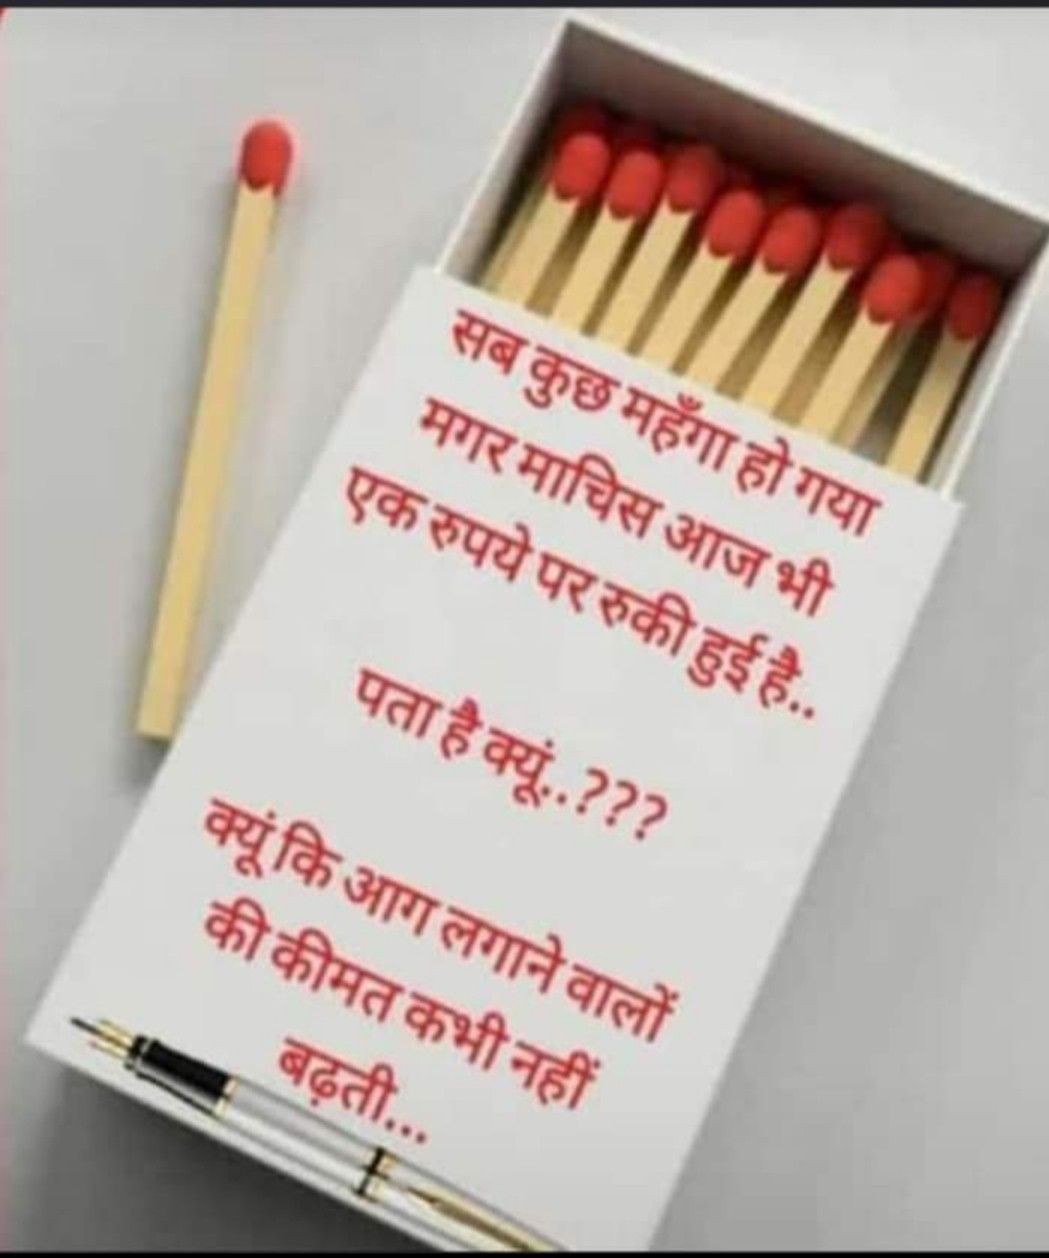 सब कुछ महँगा हो गया
मगर माचिस आज भी
एक रुपये पर रुकी हुई है..
पता है क्यूं..???
क्यूं कि आग लगाने वालों
की कीमत कभी नहीं
बढ़ती...